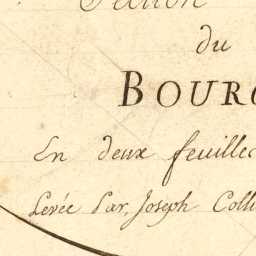 du
BOURG
En deux feuilles
Levée Par, Joseph Colli